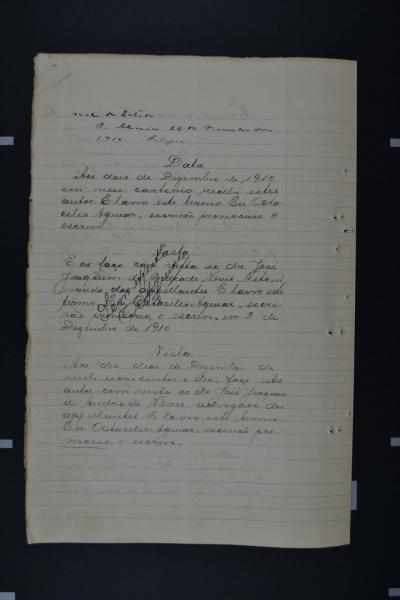 1910.
Data
Aos dois de Dezembro de 1910
em meu cartorio recebi estes
autos. E lavro este termo. Eu Octa-
cilio Aguiar, escrivão provisorio o
escrevi.
Vista
E os faço com vista ao dr José
Joaquim de Andrade Neves Neto,
dos appellantes. E lavro este
termo. Eu Octacilio Aguiar, escri-
vão provisorio, o escrevi, em 2 de
Dezembro de 1910
Vista
Aos dez dias de Dezembro de
mil novecentos e dez, faço estes
autos com vista ao dr José Joaquim
de Andrade Neves, advogado dos
appellantes. E lavro este termo.
Eu Octacilio Aguiar, escrivão pro-
visorio, o escrevi.